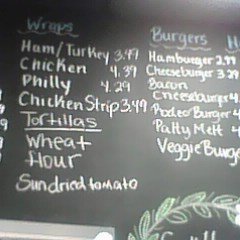 Wraps
Ham/Turkey 3.49
Chicken 4.39
Philly 4.29
Chicken Strip 3.49
Tortillas
Wheat
Flour
Sundried tomato
Burgers
Hamburger 2.99
Cheeseburger 3.29
Bacon
Cheeseburger 4
Rodeo Burger 4
Patty Melt 4
Veggie Burge